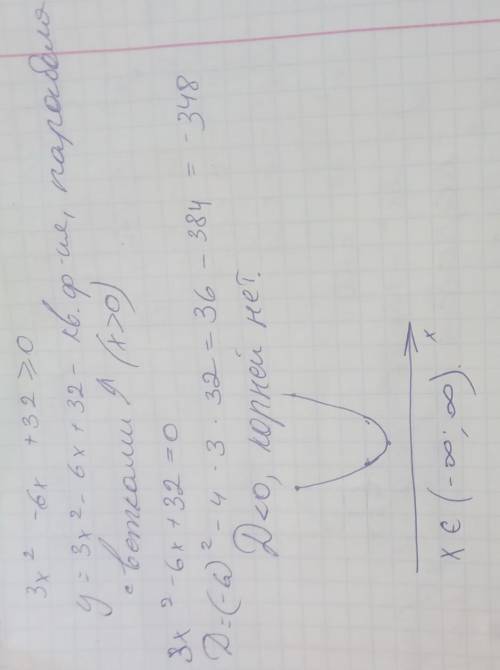 3x² - 6x + 32 ≥ 0
y = 3x² - 6x + 32 - кв. ф-ия, парабола
с ветками ↑ (x>0)
3x² - 6x + 32 = 0
D = (-6)² - 4 · 3 · 32 = 36 - 384 = -348
D<0, корней нет.
x
x ∈ (-∞; ∞).